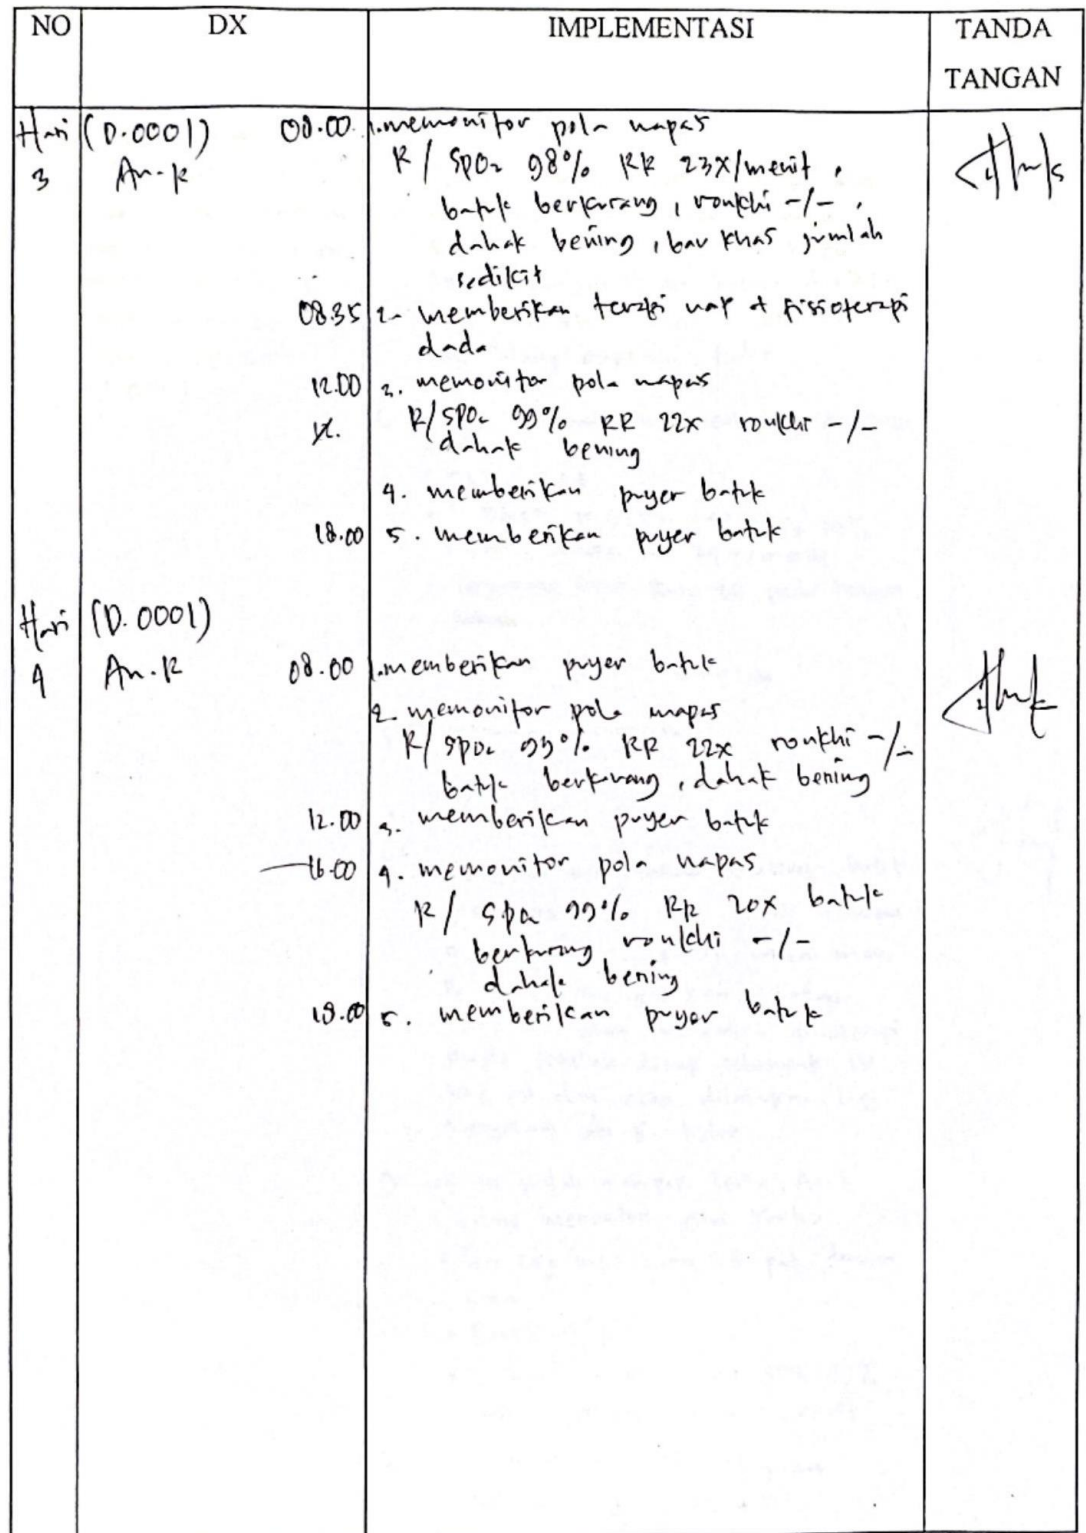 NO DX IMPLEMENTASI TANDA TANGAN
Hari 3 (D.0001) An. K 08.00 1. memonitor pola napas
R/ SPO2 98% RR 23x/menit,
batuk berkurang, ronkhi -/-,
dahak bening, bau khas jumlah
sedikit
08.35 2. memberikan terapi uap + fisioterapi
dada
12.00 3. memonitor pola napas
R/ SPO2 99% RR 22x ronkhi -/-
dahak bening
4. memberikan puyer batuk
18.00 5. memberikan puyer batuk
Hari 4 (D.0001)
An. K 08.00 1. memberikan puyer batuk
2. memonitor pola napas
R/ SPO2 99% RR 22x ronkhi -/-
batuk berkurang, dahak bening
12.00 3. memberikan puyer batuk
16.00 4. memonitor pola napas
R/ SPO2 99% RR 20x batuk
berkurang ronkhi -/-
dahak bening
18.00 5. memberikan puyer batuk